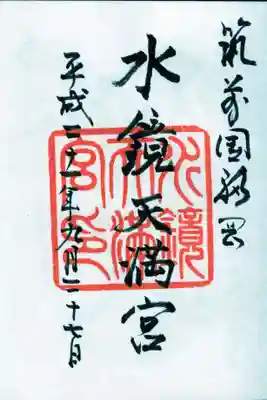 筑前国福岡
水鏡天満宮
水鏡天満宮印
平成二十一年九月二十七日